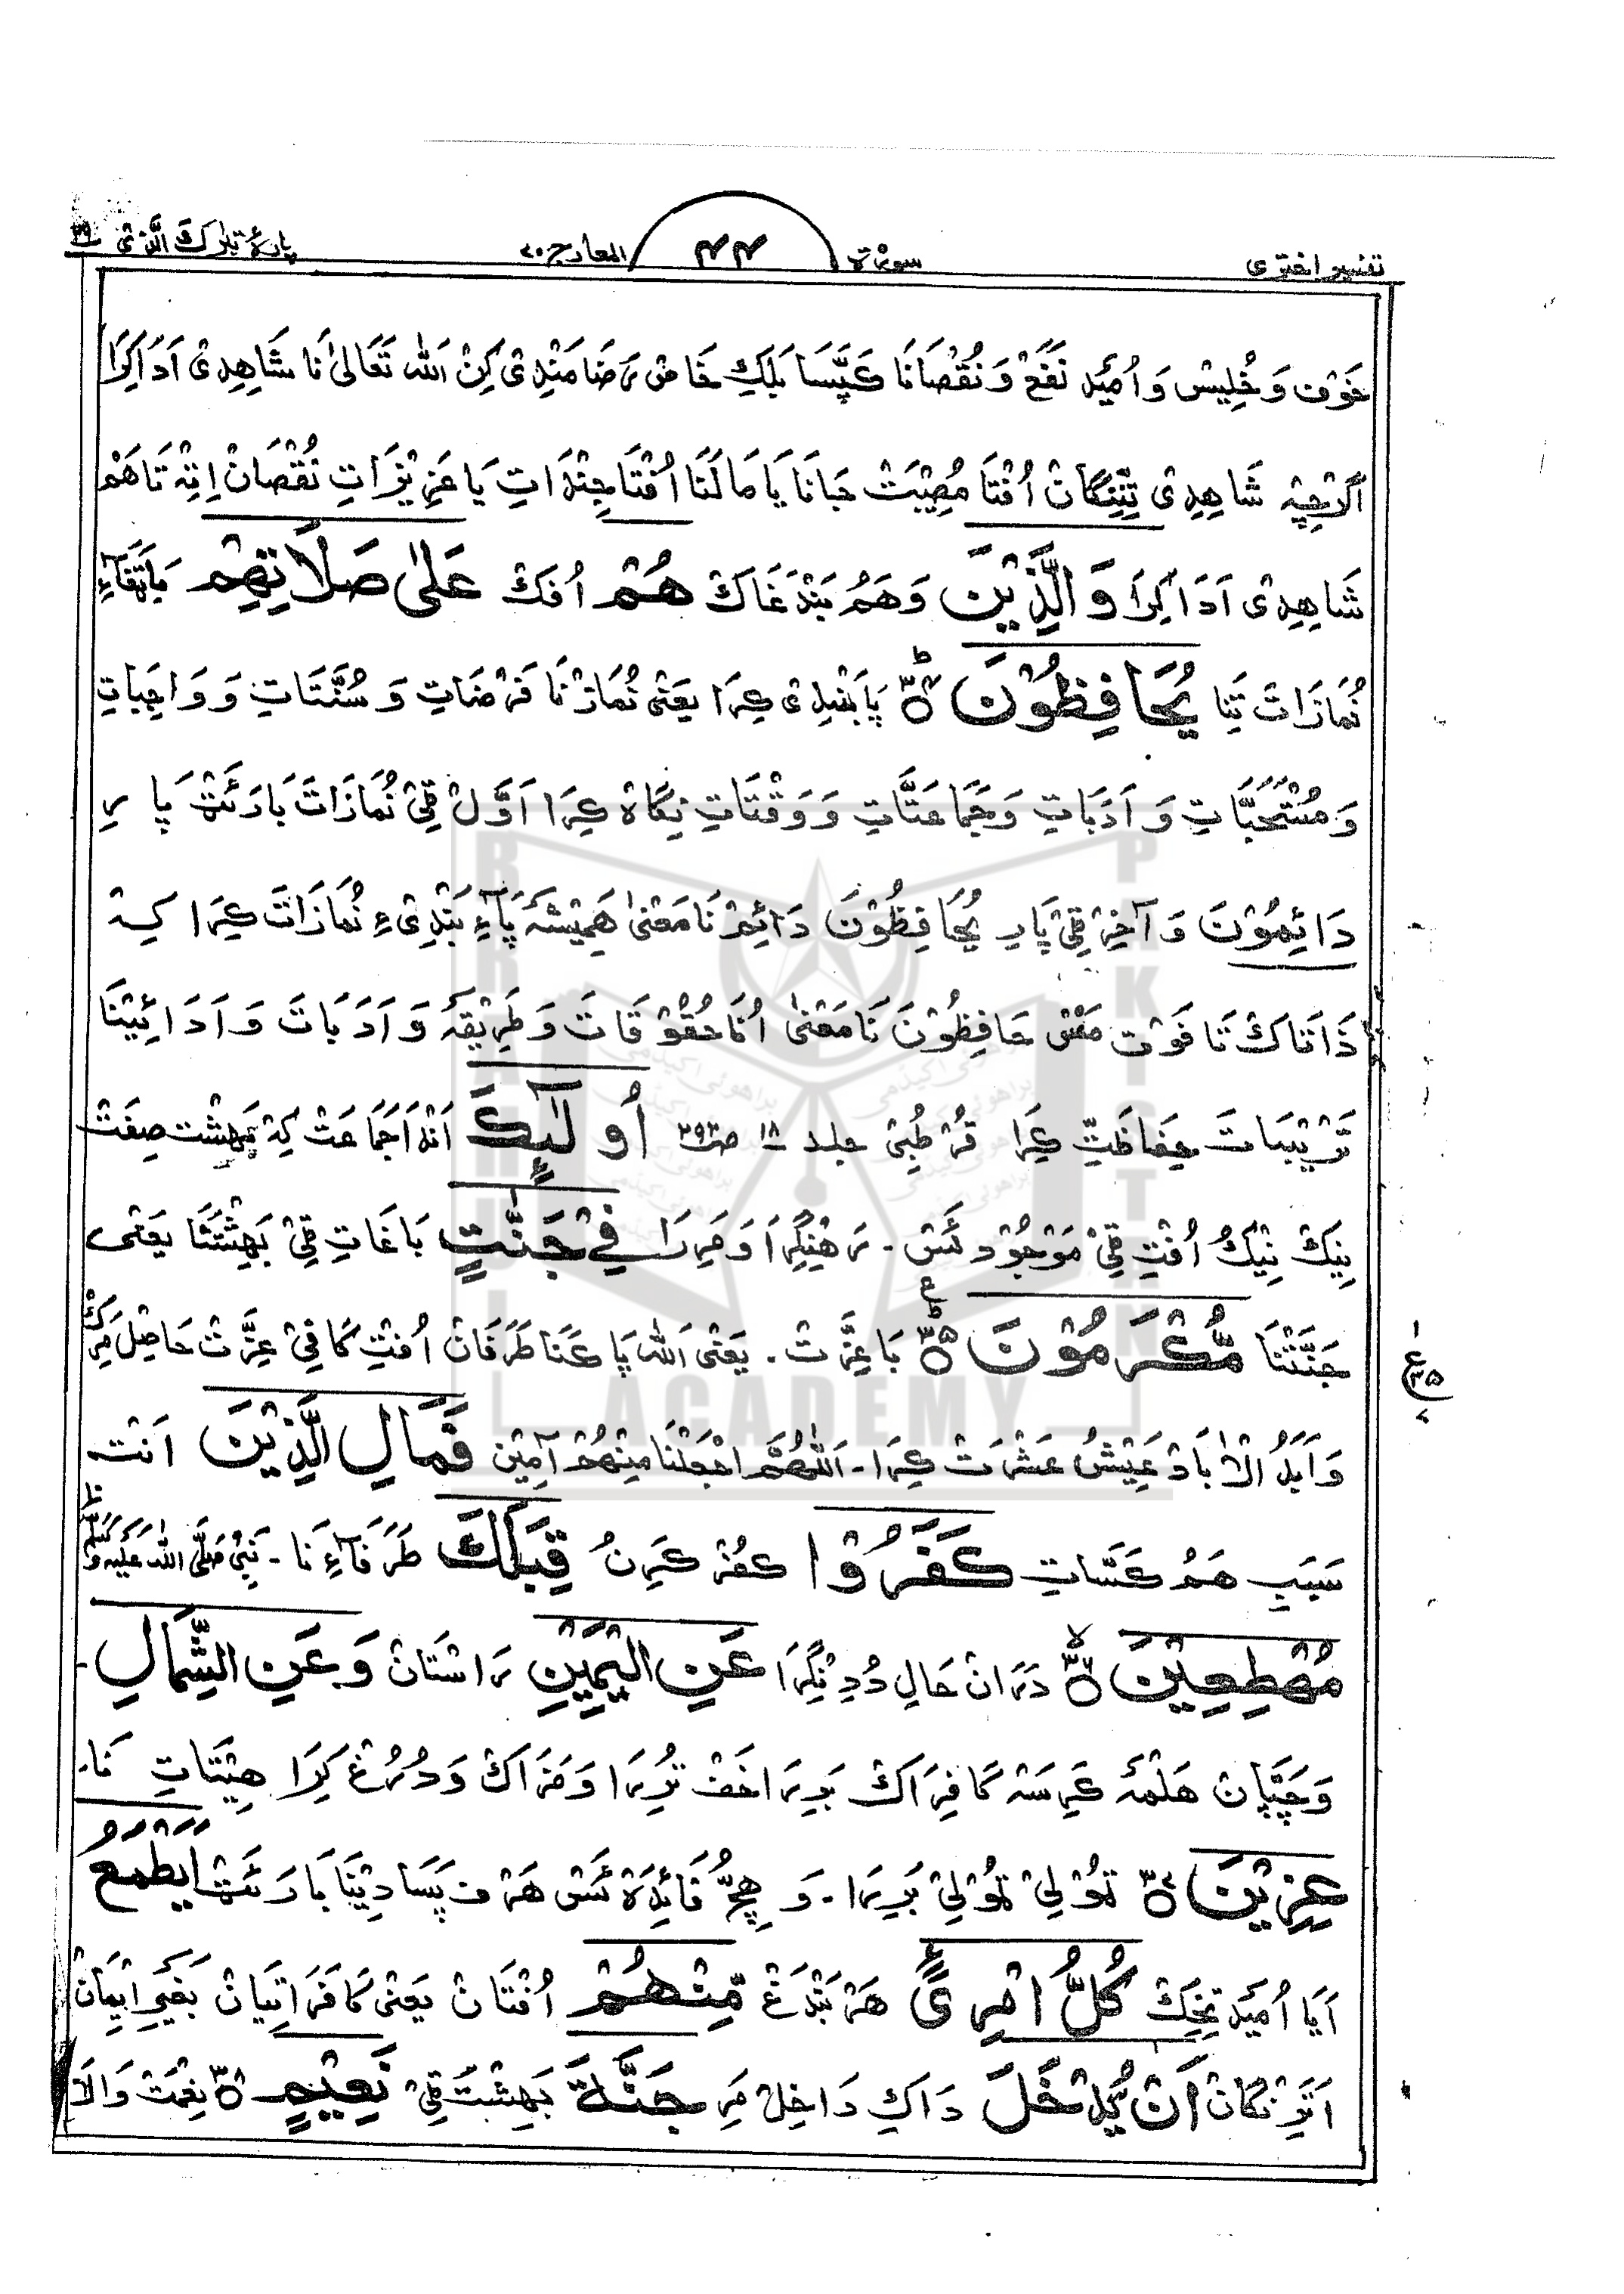 تفسیر اختری سورۃ ۴۴ المعارج ۷۰ پارۂ تبارک الذی ۲۹
خَوْف وَ خُلِیس وَ اُمَیْد نَفَعْ وَ نُقْصَانَا کَپَّسَا بَلَکِ خَاص رَضَا مَنْدِیْ کِنْ اَللہ تَعَالیٰ نَا شَاہِدِیْ اَدَا کِرَا
اَگَرْچِہْ شَاہِدِیْ تِنِنگَانْ اُفْتَا مُصِیْبَتْ جَانَا یَا مَالَنَا اُفْتَا جِنْدَاتِ یَا عَزِیْزَاتِ نُقْصَانْ اِتِہْ تَاہَمْ
شَاہِدِیْ اَدَا کِرَا وَالَّذِیْنَ وَہَمُ بَنْدَغَاکْ هُمْ اُفَکْ عَلٰی صَلَاتِهِمْ پَابَنْدِیْ
نُمَازَاتَ تِنَا یُحَافِظُوْنَ ۳۴ پَابَنْدِیْ کِرَا یَعْنِیْ نُمَازْنَا فَرْضَاتِ وَ سُنَّتَاتِ وَ وَاجِبَاتِ
وَ مُسْتَحَبَّاتِ وَ اَدَبَاتِ وَ جَمَاعَتَّاتِ وَ وَقْتَاتِ نِگَاہ کِرَا اَوَّلْ ٹِیْ نُمَازَاتَ بَارَئَٹْ پَارِ
دَائِمُوْنَ وَ آخِرْ ٹِیْ پَارِ یُحَافِظُوْنَ دَائِمْ نَا مَعْنیٰ ہَمِیْشَہْ پَابَنْدِیْ ءِ نُمَازَاتَ کِرَا کِہْ
ذَاتَاکْ تَا فَوْت مَفَس حَافِظُوْنَ نَا مَعْنیٰ اُنَا حُقُوْقَاتَ وَ طَرِیْقَہْ وَ اَدَبَاتَ وَ اَدَائِیْنَا
تَرْتِیْبَاتَ حِفَاظَتِّ کِرَا قُرْطُبِیْ جلد ۱۸ ص ۲۹۳ اُولٰٓئِكَ اَنْدَا جَمَاعَتْ کِہْ ہَشْت صِفَتْ
نِیْکْ نِیْکُ اُفْتِ ٹِیْ مَوْجُوْد ئَس - رَہْنگِرَا وَ مَرِرَا فِیْ جَنّٰتٍ بَاغَاتِ ٹِیْ بَہِشْتَنَا یَعْنِی
جَنَّتْنَا مُّكْرَمُوْنَ ۳۵ بَا عِزَّتْ - یَعْنِی اَللہ پَاکَنَا طَرَفَانْ اُفْتِ کَافِیْ عِزَّتْ حَاصِلْ مَرِکْ
وَ اَبَدُ الْاٰبَادْ عَیْشُ عَشْرَتْ کِرَا - اَللّٰهُمَّ اجْعَلْنَا مِنْهُمْ آمِیْن فَمَالِ الَّذِیْنَ اَنْت
سَبَبِ ہَمُ کَسَّاتِ كَفَرُوْا کُفْر کَرِنُ قِبَلَكَ طَرَفَاءِ نَا - نَبِیْ صَلَّی اللہ عَلَیْہِ وَسَلَّمْ
مُهْطِعِیْنَ ۳۶ دَرَانْ حَالِ دُدِنگِرَا عَنِ الْیَمِیْنِ رَاسْتَانْ وَ عَنِ الشِّمَالِ
وَ چَپَّانْ ہَلْمَہْ کَرِسَہ کَافِرَاکْ بَرِرَا خَفْ تَرِرَا وَ مَزَاکْ وَ دُرُغْ کِرَا ہِیْتَاتِ نَا.
عِزِیْنَ ۳۷ ٹُوْلِیْ ٹُوْلِیْ بَرِرَا - وَ ہِچُّ فَائِدَہْ ئَس ہَرْفَپَسَا دِیْنَا بَارَئَٹْ اَیَطْمَعُ
آیَا اُمَیْد تِخِکْ كُلُّ امْرِئٍ ہَرْ بَنْدَغْ مِّنْهُمْ اُفْتَانْ یَعْنِی کَافَرَاتِیَانْ بَغَیْر اِیْمَانْ
اَتِرِنگَانْ اَنْ یُّدْخَلَ دَاکِ دَاخِلْ مَرِ جَنَّةَ بَہِشْتَ ٹِیْ نَعِیْمٍ ۳۸ نِعْمَتْ وَالَا
ع ۳۵
BRAHUI ACADEMY PAKISTAN
براھوئی اکیڈمی